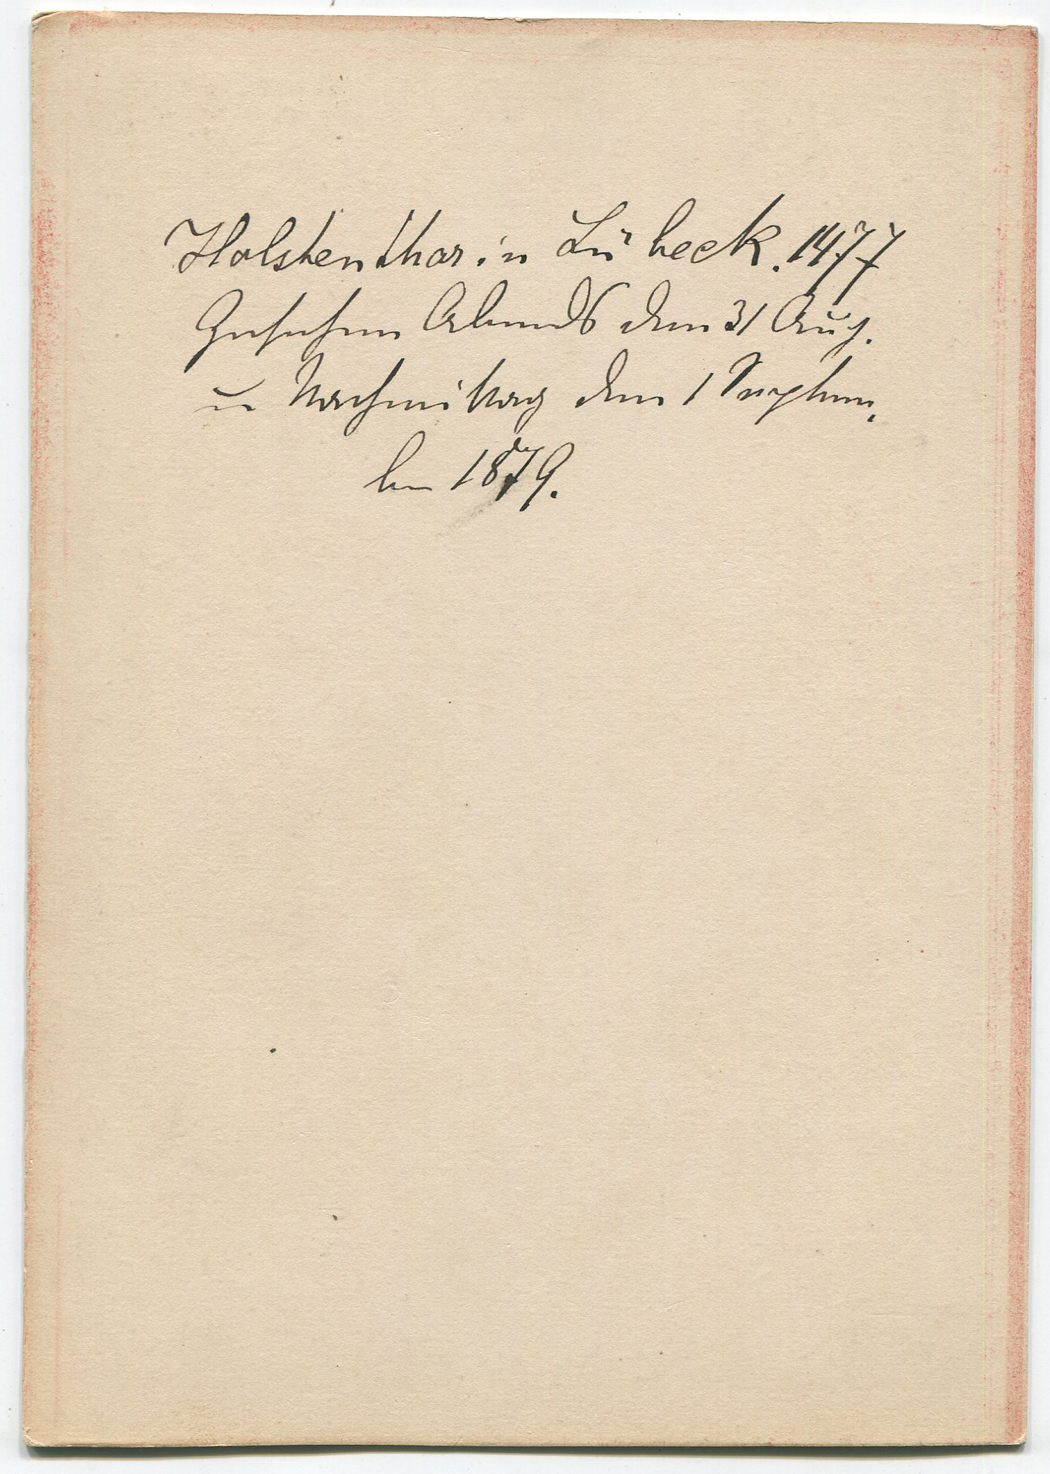 Holstenthor in Lübeck. 1477
Gesehen Abends den 31 Aug.
u Nachmittag den 1 Septem,
ber 1879.